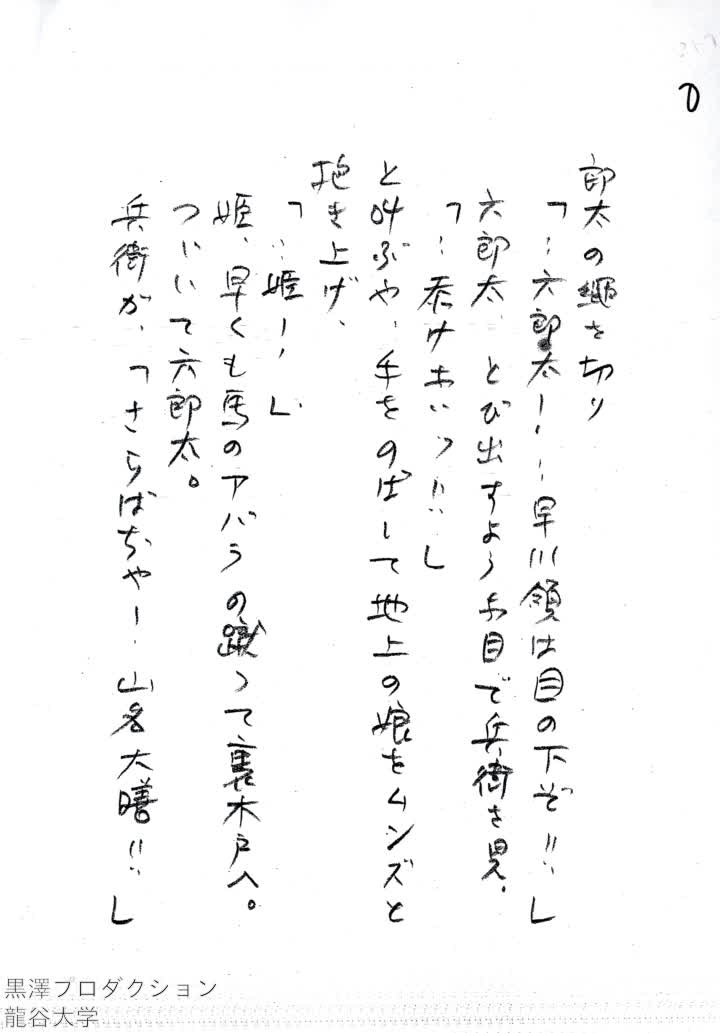 郎太の縄を切り
「‥六郎太！‥早川領は目の下ぞ!!」
六郎太、とび出すような目で兵衛を見、
「‥忝けないッ!!」
と叫ぶや、手をのばして地上の娘をムンズと
抱き上げ、
「‥姫！」
姫、早くも馬のアバラの蹴って裏木戸へ。
つづいて六郎太。
兵衛が、「さらばぢゃ！山名大膳!!」
黒澤プロダクション
龍谷大学